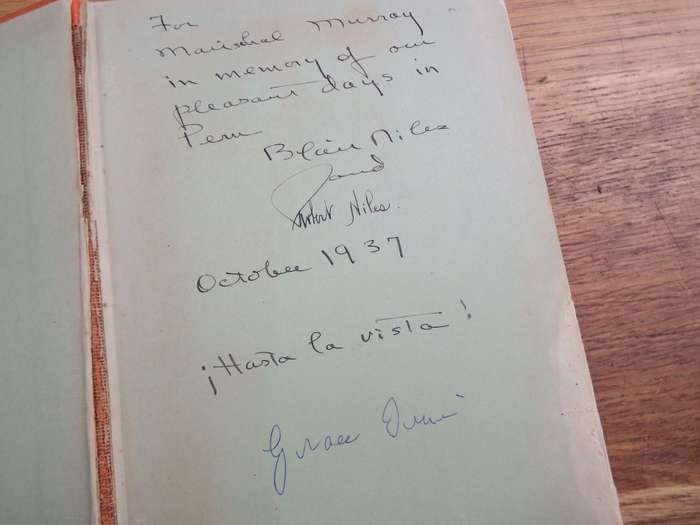 For
Marishal Murray
in memory of our
pleasant days in
Peru
Blair Niles
and
Robert Niles.
October 1937
¡Hasta la vista!
Grace